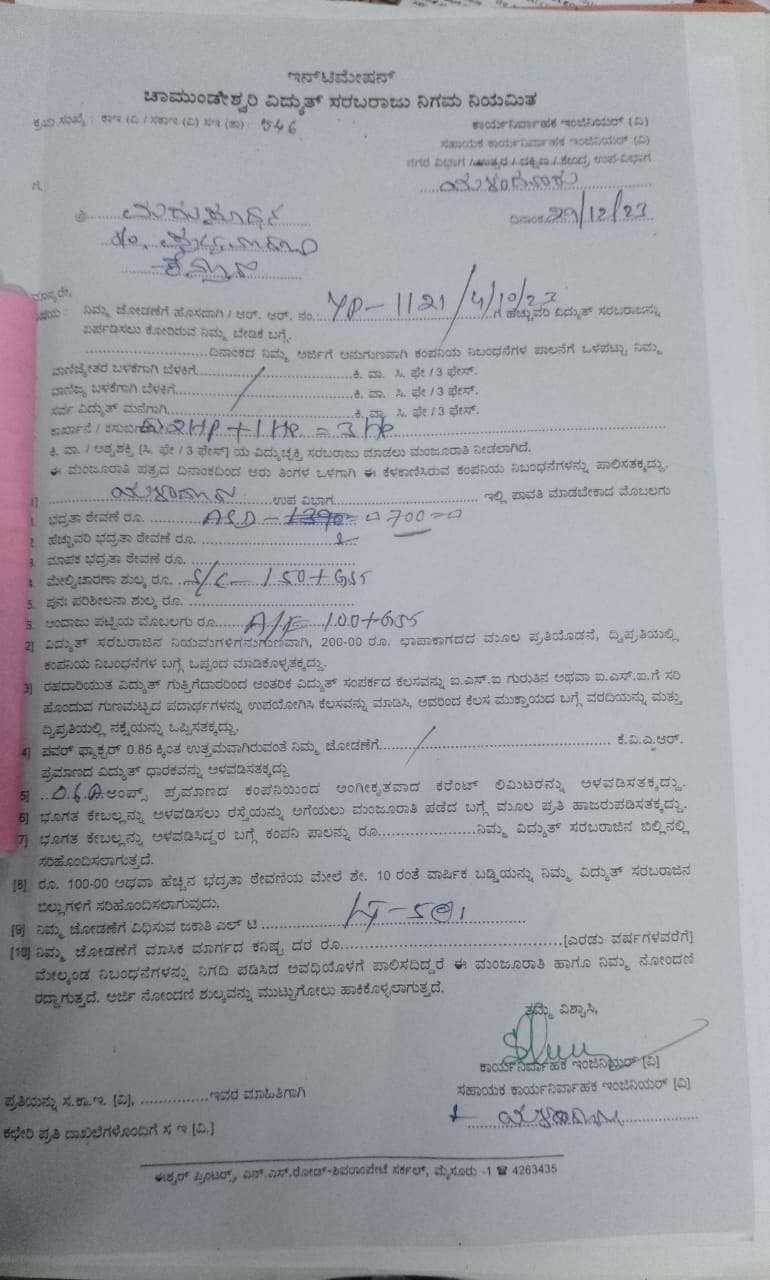 ಇನ್‌ಟಿಮೇಷನ್
ಚಾಮುಂಡೇಶ್ವರಿ ವಿದ್ಯುತ್ ಸರಬರಾಜು ನಿಗಮ ನಿಯಮಿತ
ಕ್ರಮ ಸಂಖ್ಯೆ : ಕಾಇ (ವಿ / ಸಕಾಇ (ವಿ) ಸಇ (ತಾ) : 946
ಕಾರ್ಯನಿರ್ವಾಹಕ ಇಂಜಿನಿಯರ್ (ವಿ)
ಸಹಾಯಕ ಕಾರ್ಯನಿರ್ವಾಹಕ ಇಂಜಿನಿಯರ್ (ವಿ)
ನಗರ ವಿಭಾಗ / ಉತ್ತರ / ದಕ್ಷಿಣ / ಕೇಂದ್ರ, ಉಪ-ವಿಭಾಗ
ಗೆ,
ದಿನಾಂಕ 29/12/23
ಮಾನ್ಯರೇ,
ವಿಷಯ : ನಿಮ್ಮ ಜೋಡಣೆಗೆ ಹೊಸದಾಗಿ / ಆರ್. ಆರ್. ನಂ. YP-1121/4/10/23 ಗೆ ಹೆಚ್ಚುವರಿ ವಿದ್ಯುತ್ ಸರಬರಾಜನ್ನು
ಏರ್ಪಡಿಸಲು ಕೋರಿರುವ ನಿಮ್ಮ ಬೇಡಿಕೆ ಬಗ್ಗೆ.
..............................ದಿನಾಂಕದ ನಿಮ್ಮ ಅರ್ಜಿಗೆ ಅನುಗುಣವಾಗಿ ಕಂಪನಿಯ ನಿಬಂಧನೆಗಳ ಪಾಲನೆಗೆ ಒಳಪಟ್ಟು ನಿಮ್ಮ
ವಾಣಿಜ್ಯೇತರ ಬಳಕೆಗಾಗಿ ಬೆಳಕಿಗೆ..............................ಕಿ. ವಾ. ಸಿ. ಫೇ / 3 ಫೇಸ್.
ವಾಣಿಜ್ಯ ಬಳಕೆಗಾಗಿ ಬೆಳಕಿಗೆ..............................ಕಿ. ವಾ. ಸಿ. ಫೇ / 3 ಫೇಸ್.
ಸರ್ವ ವಿದ್ಯುತ್ ಮನೆಗಾಗಿ..............................ಕಿ. ವಾ. ಸಿ. ಫೇ / 3 ಫೇಸ್.
ಕಾರ್ಖಾನೆ / ಕಸುಬಿಗಾಗಿ 2HP + 1HP = 3HP
ಕಿ. ವಾ. / ಅಶ್ವಶಕ್ತಿ [ಸಿ. ಫೇ / 3 ಫೇಸ್] ಯ ವಿದ್ಯುಚ್ಛಕ್ತಿ ಸರಬರಾಜು ಮಾಡಲು ಮಂಜೂರಾತಿ ನೀಡಲಾಗಿದೆ.
ಈ ಮಂಜೂರಾತಿ ಪತ್ರದ ದಿನಾಂಕದಿಂದ ಆರು ತಿಂಗಳ ಒಳಗಾಗಿ ಈ ಕೆಳಕಾಣಿಸಿರುವ ಕಂಪನಿಯ ನಿಬಂಧನೆಗಳನ್ನು ಪಾಲಿಸತಕ್ಕದ್ದು.
1] ..............................ಉಪ ವಿಭಾಗ.............................. ಇಲ್ಲಿ ಪಾವತಿ ಮಾಡಬೇಕಾದ ಮೊಬಲಗು
1. ಭದ್ರತಾ ಠೇವಣಿ ರೂ. ASD - 1390=0 700=0
2. ಹೆಚ್ಚುವರಿ ಭದ್ರತಾ ಠೇವಣಿ ರೂ. ..............................
3. ಮಾಪಕ ಭದ್ರತಾ ಠೇವಣಿ ರೂ. ..............................
4. ಮೇಲ್ವಿಚಾರಣಾ ಶುಲ್ಕ ರೂ. S/C - 150 + GST
5. ಪುನಃ ಪರಿಶೀಲನಾ ಶುಲ್ಕ ರೂ. ..............................
6. ಅಂದಾಜು ಪಟ್ಟಿಯ ಮೊಬಲಗು ರೂ. A/F - 100 + GST
2] ವಿದ್ಯುತ್ ಸರಬರಾಜಿನ ನಿಯಮಗಳಿಗನುಗುಣವಾಗಿ, 200-00 ರೂ. ಛಾಪಾಕಾಗದದ ಮೂಲ ಪ್ರತಿಯೊಡನೆ, ದ್ವಿಪ್ರತಿಯಲ್ಲಿ
ಕಂಪನಿಯ ನಿಬಂಧನೆಗಳ ಬಗ್ಗೆ ಒಪ್ಪಂದ ಮಾಡಿಕೊಳ್ಳತಕ್ಕದ್ದು.
3] ರಹದಾರಿಯುತ ವಿದ್ಯುತ್ ಗುತ್ತಿಗೆದಾರರಿಂದ ಆಂತರಿಕ ವಿದ್ಯುತ್ ಸಂಪರ್ಕದ ಕೆಲಸವನ್ನು ಐ.ಎಸ್.ಐ ಗುರುತಿನ ಅಥವಾ ಐ.ಎಸ್.ಐ.ಗೆ ಸರಿ
ಹೊಂದುವ ಗುಣಮಟ್ಟದ ಪದಾರ್ಥಗಳನ್ನು ಉಪಯೋಗಿಸಿ ಕೆಲಸವನ್ನು ಮಾಡಿಸಿ, ಅವರಿಂದ ಕೆಲಸ ಮುಕ್ತಾಯದ ಬಗ್ಗೆ ವರದಿಯನ್ನು ಮತ್ತು
ದ್ವಿಪ್ರತಿಯಲ್ಲಿ ನಕ್ಷೆಯನ್ನು ಒಪ್ಪಿಸತಕ್ಕದ್ದು.
4] ಪವರ್ ಫ್ಯಾಕ್ಟರ್ 0.85 ಕ್ಕಿಂತ ಉತ್ತಮವಾಗಿರುವಂತೆ ನಿಮ್ಮ ಜೋಡಣೆಗೆ.............................. ಕೆ.ವಿ.ಎ.ಆರ್.
ಪ್ರಮಾಣದ ವಿದ್ಯುತ್ ಧಾರಕವನ್ನು ಅಳವಡಿಸತಕ್ಕದ್ದು
5] ..........ಆಂಪ್ಸ್ ಪ್ರಮಾಣದ ಕಂಪನಿಯಿಂದ ಅಂಗೀಕೃತವಾದ ಕರೆಂಟ್ ಲಿಮಿಟರನ್ನು ಅಳವಡಿಸತಕ್ಕದ್ದು.
6] ಭೂಗತ ಕೇಬಲ್ಲನ್ನು ಅಳವಡಿಸಲು ರಸ್ತೆಯನ್ನು ಅಗೆಯಲು ಮಂಜೂರಾತಿ ಪಡೆದ ಬಗ್ಗೆ ಮೂಲ ಪ್ರತಿ ಹಾಜರುಪಡಿಸತಕ್ಕದ್ದು.
[7] ಭೂಗತ ಕೇಬಲ್ಲನ್ನು ಅಳವಡಿಸಿದ್ದರ ಬಗ್ಗೆ ಕಂಪನಿ ಪಾಲನ್ನು ರೂ....................ನಿಮ್ಮ ವಿದ್ಯುತ್ ಸರಬರಾಜಿನ ಬಿಲ್ಲಿನಲ್ಲಿ
ಸರಿಹೊಂದಿಸಲಾಗುತ್ತದೆ.
[8] ರೂ. 100-00 ಅಥವಾ ಹೆಚ್ಚಿನ ಭದ್ರತಾ ಠೇವಣಿಯ ಮೇಲೆ ಶೇ. 10 ರಂತೆ ವಾರ್ಷಿಕ ಬಡ್ಡಿಯನ್ನು ನಿಮ್ಮ ವಿದ್ಯುತ್ ಸರಬರಾಜಿನ
ಬಿಲ್ಲುಗಳಿಗೆ ಸರಿಹೊಂದಿಸಲಾಗುವುದು.
[9] ನಿಮ್ಮ ಜೋಡಣೆಗೆ ವಿಧಿಸುವ ಜಕಾತಿ ಎಲ್ ಟಿ ..............................
[10] ನಿಮ್ಮ ಜೋಡಣೆಗೆ ಮಾಸಿಕ ಮಾರ್ಗದ ಕನಿಷ್ಟ ದರ ರೂ..............................[ಎರಡು ವರ್ಷಗಳವರೆಗೆ]
ಮೇಲ್ಕಂಡ ನಿಬಂಧನೆಗಳನ್ನು ನಿಗದಿ ಪಡಿಸಿದ ಅವಧಿಯೊಳಗೆ ಪಾಲಿಸದಿದ್ದರೆ ಈ ಮಂಜೂರಾತಿ ಹಾಗೂ ನಿಮ್ಮ ನೋಂದಣಿ
ರದ್ದಾಗುತ್ತದೆ. ಅರ್ಜಿ ನೋಂದಣಿ ಶುಲ್ಕವನ್ನು ಮುಟ್ಟುಗೋಲು ಹಾಕಿಕೊಳ್ಳಲಾಗುತ್ತದೆ.
ತಮ್ಮ ವಿಶ್ವಾಸಿ,
ಕಾರ್ಯನಿರ್ವಾಹಕ ಇಂಜಿನಿಯರ್ [ವಿ]
ಸಹಾಯಕ ಕಾರ್ಯನಿರ್ವಾಹಕ ಇಂಜಿನಿಯರ್ [ವಿ]
ಪ್ರತಿಯನ್ನು ಸ.ಕಾ.ಇ. [ವಿ], ..............ಇವರ ಮಾಹಿತಿಗಾಗಿ
ಕಛೇರಿ ಪ್ರತಿ ದಾಖಲೆಗಳೊಂದಿಗೆ ಸ ಇ [ವಿ.]
ಈಶ್ವರ್ ಪ್ರಿಂಟರ್ಸ್, ಎನ್.ಎಸ್.ರೋಡ್-ಶಿವರಾಂಪೇಟೆ ಸರ್ಕಲ್, ಮೈಸೂರು -1 ☎ 4263435